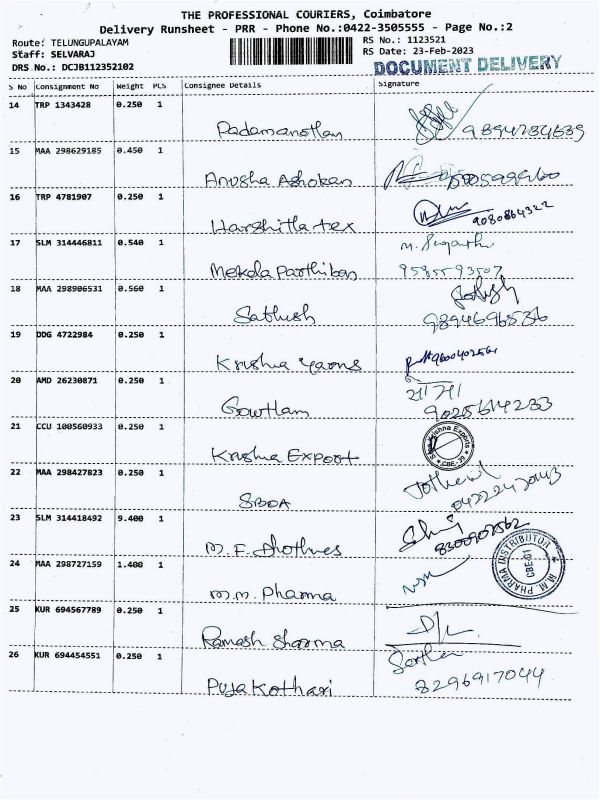 THE PROFESSIONAL COURIERS, Coimbatore
Delivery Runsheet - PRR - Phone No.:0422-3505555 - Page No.:2
Route: TELUNGUPALAYAM
Staff: SELVARAJ
DRS No.: DCJB112352102
RS No.: 1123521
RS Date: 23-Feb-2023
DOCUMENT DELIVERY
S No Consignment No Weight PCS Consignee Details Signature
14 TRP 1343428 0.250 1
Padamanathan 9894284639
15 MAA 298629185 0.450 1
Anusha Ashokan
16 TRP 4781907 0.250 1
Harshitha tex 9080864322
17 SLM 314446811 0.540 1
Mekala Parthiban 9585593507
18 MAA 298906531 0.560 1
Sathish 9894696536
19 DDG 4722984 0.250 1
Krishna Yarns 9600402561
20 AMD 26230871 0.250 1
Gowtham 9025614233
21 CCU 100560933 0.250 1
Krishna Export
22 MAA 298427823 0.250 1
SBOA
23 SLM 314418492 9.400 1
M.F. Dhothies
24 MAA 298727159 1.400 1
M.M. Pharma
M.M. PHARMA DISTRIBUTOR
CBE-01
25 KUR 694567789 0.250 1
Ramash Sharma
26 KUR 694454551 0.250 1
Puja Kothari 8296917044